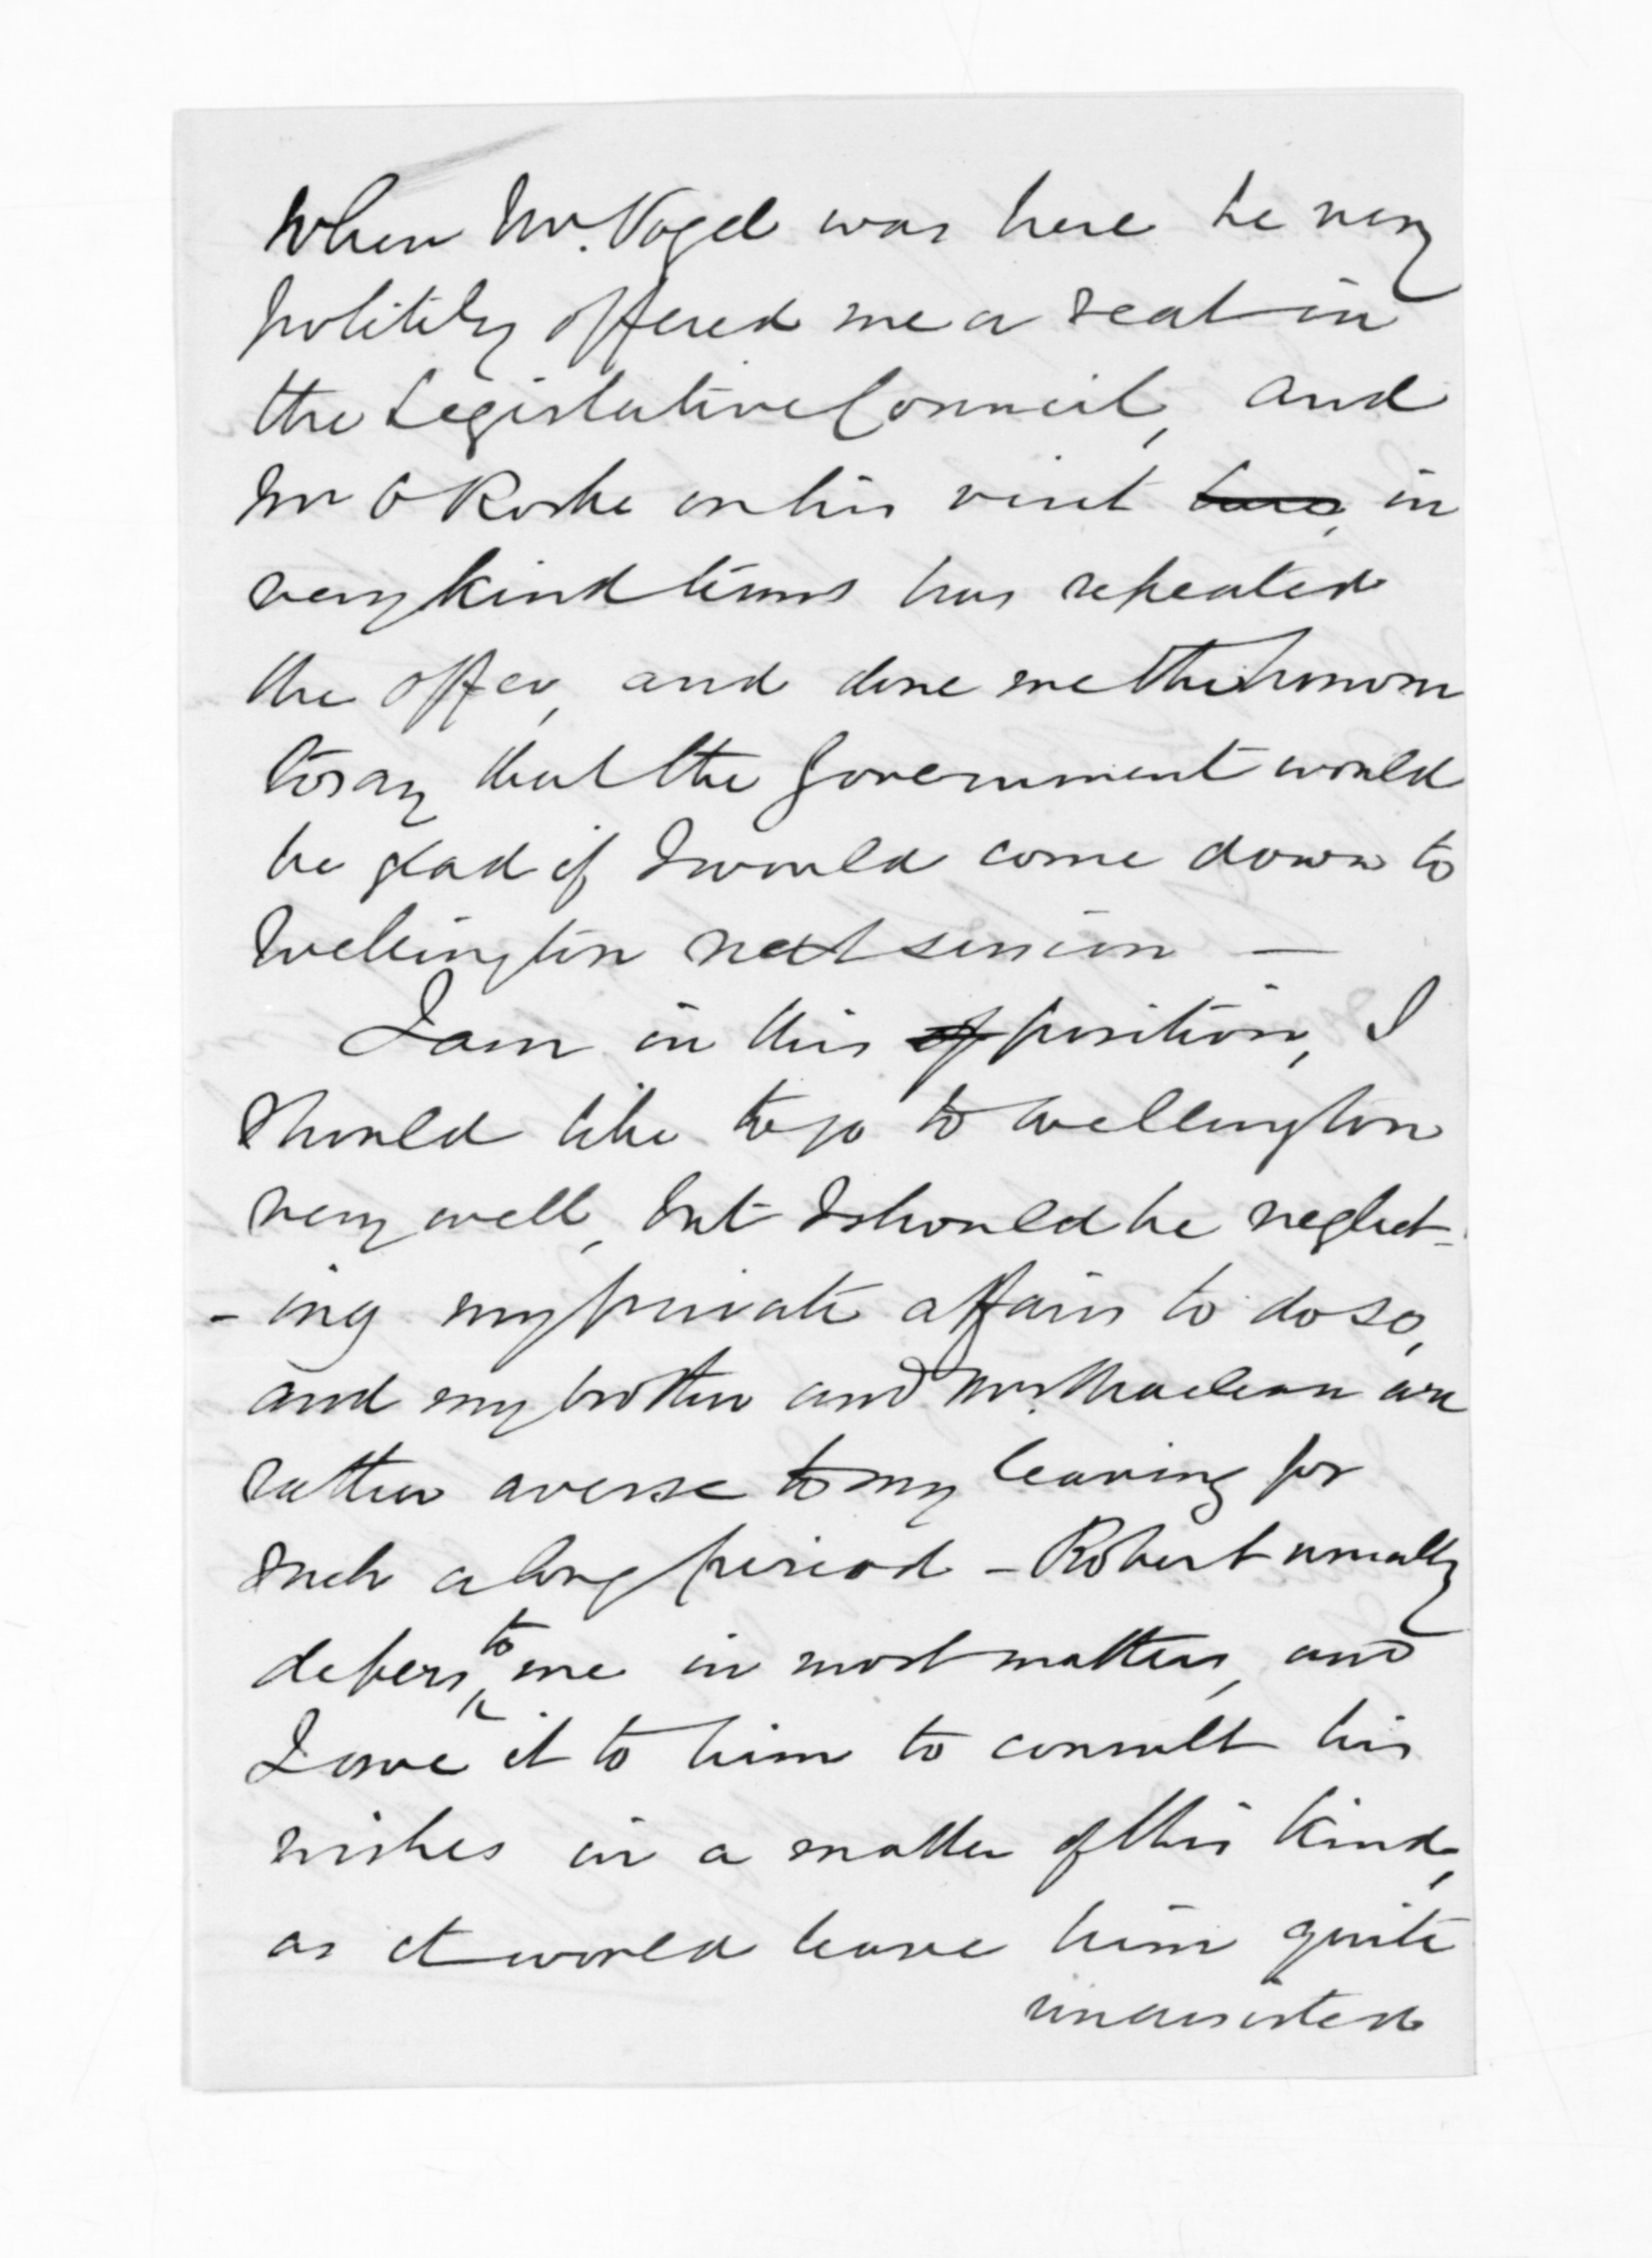 When Mr. Vogel was here he very
politily offered me a seat in
the Legislative Council, and
Mr O Rorke on his visit here, in
very kind terms has repeated
the offer, and done me the honour
to say that the Government would
be glad if I would come down to
Wellington next session —
I am in this of position, I
should like to go to Wellington
very well, but I should be neglect-
- ing my private affairs to do so,
and my brother and Mrs. Maclean are
rather averse to my leaving for
such a long period - Robert usually
defers to me in most matters, and
I owe it to him to consult his
wishes in a matter of this kind,
as it would leave him quite
unassisted